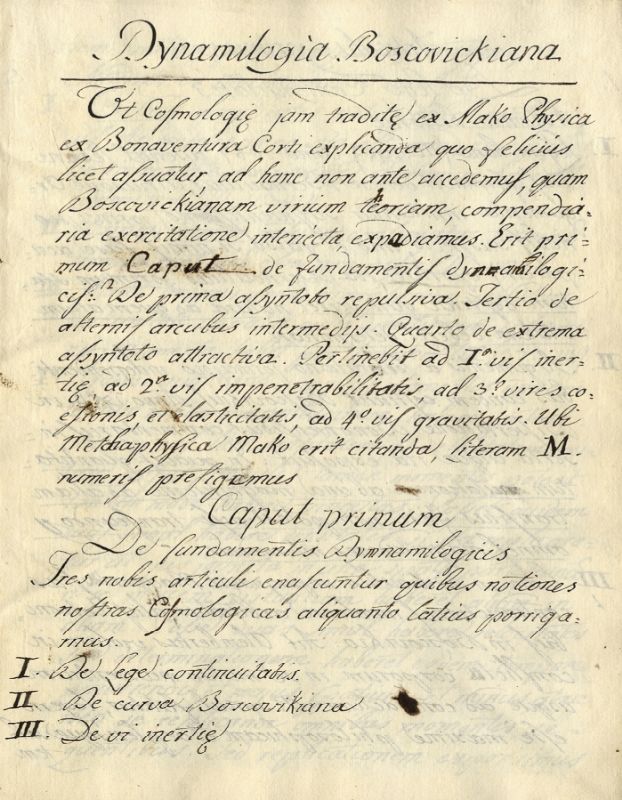 Dynamilogia Boscovickiana
Ut Cosmologię jam traditę ex Mako Physica
ex Bonaventura Corti explicanda quo felicius
licet assuatur ad hanc non ante accedemus, quam
Boscovickianam virium theoriam, compendia-
ria exercitatione interjecta, expediamus. Erit pri-
mum Caput de fundamentis dynamilogi-
cis: 2º De prima assyntoto repulsiva. Tertio de
alternis arcubus intermedijs. Quarto de extrema
assyntoto attractiva. Pertinebit ad 1º vis iner-
tię ad 2º vis impenetrabilitatis ad 3º vires co-
esionis, et elasticitatis, ad 4º vis gravitatis. Ubi
Metaphysica Mako erit citanda, literam M.
numeris presigemus
Caput primum
De fundamentis Dynnamilogicis
Tres nobis articuli enascuntur quibus notiones
nostras Cosmologicas aliquanto latius porriga-
mus.
I. De lege continuitatis.
II De curva Boscovikiana
III. De vi inertię